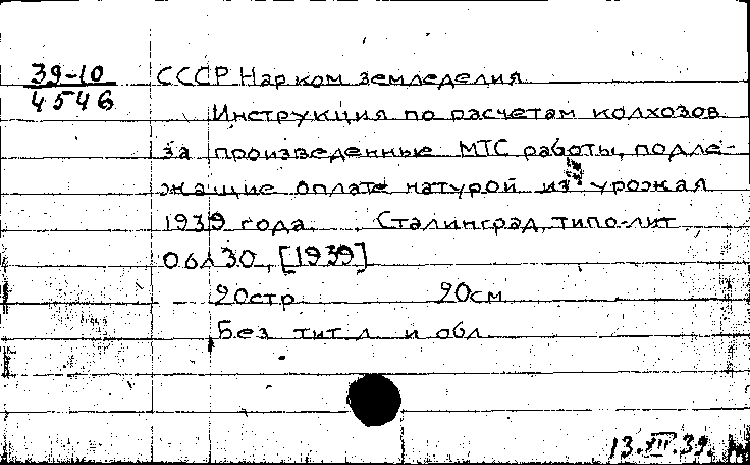 39-10
4546
СССР Нар ком земледелия
Инструкция по расчетам колхозов
за произведенные МТС работы, подле-
жащие оплате натурой из урожая
1939 года. Сталинград, типо-лит
Обл ЗО, [1939]
20стр 20см
Без тит л и обл.
13.XII.39.